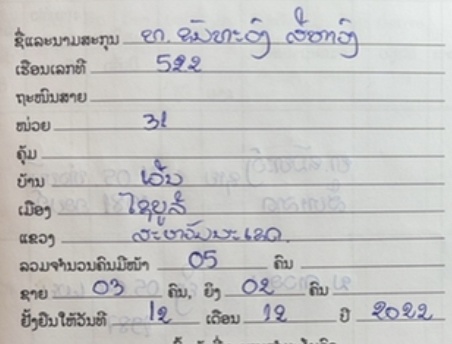 ຊື່ແລະນາມສະກຸນ ທ. ສົມຫະວົງ ສີຫາວົງ
ເຮືອນເລກທີ 522
ຖະໜົນສາຍ
ໜ່ວຍ 31
ຄຸ້ມ
ບ້ານ
ເມືອງ ໄຊບູລີ
ແຂວງ ສະຫວັນນະເຂດ.
ລວມຈຳນວນຄົນມີໜ້າ 05 ຄົນ
ຊາຍ 03 ຄົນ, ຍິງ 02 ຄົນ
ຢັ້ງຢືນໃຫ້ວັນທີ 12 ເດືອນ 12 ປີ 2022